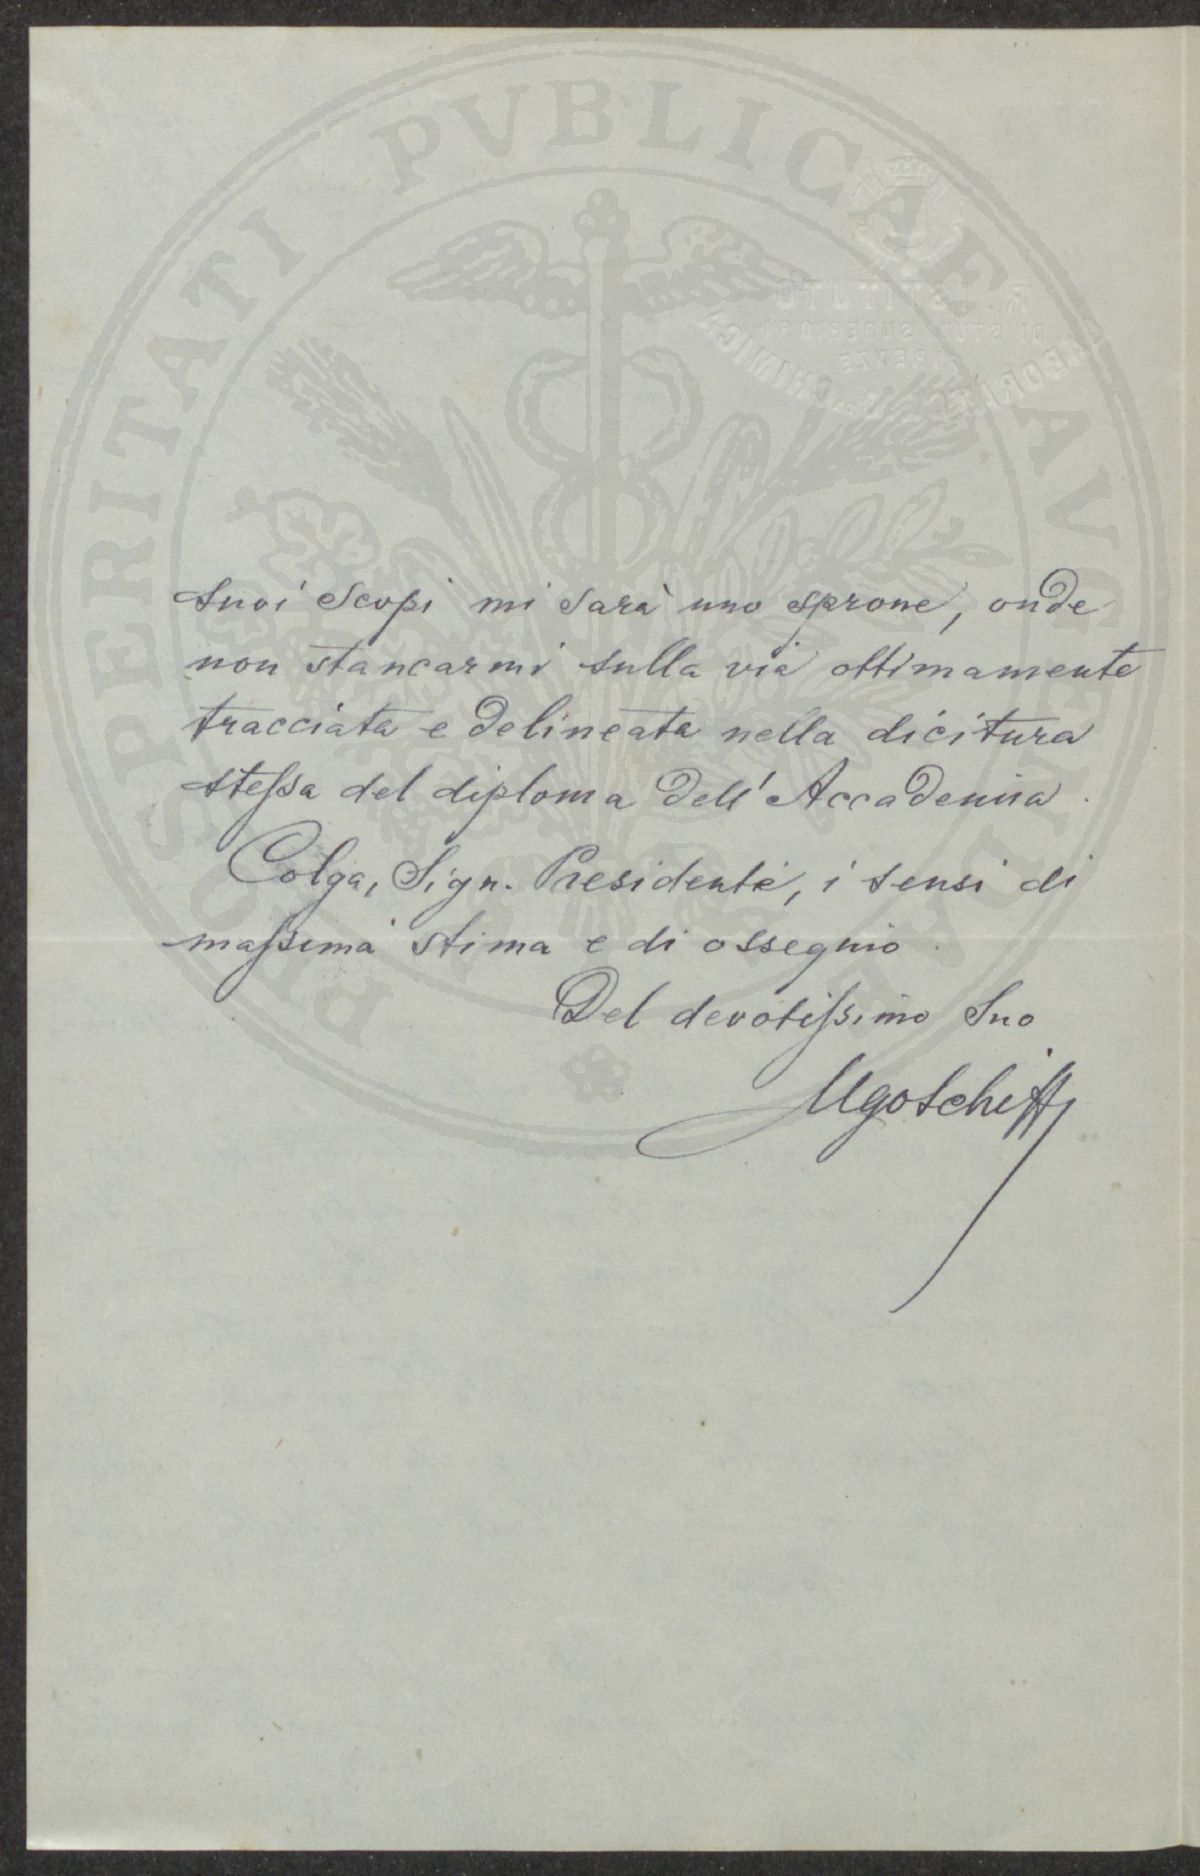 PROSPERITATI PVBLICAE AVGENDAE
R. ISTITUTO
DI STUDI SUPERIORI
FIRENZE
LABORATORIO DI CHIMICA
suoi scopi mi sarà uno sprone, onde
non stancarmi sulla via ottimamente
tracciata e delineata nella dicitura
stessa del diploma dell'Accademia.
Colga, Sign. Presidente, i sensi di
massima stima e di ossequio.
Del devotissimo Suo
Ugo Schiff